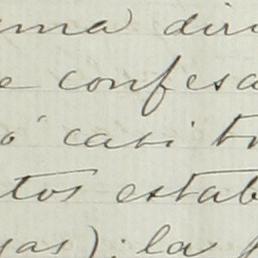 ma diri
e confesa
o casi tr
tos estab
yas); la